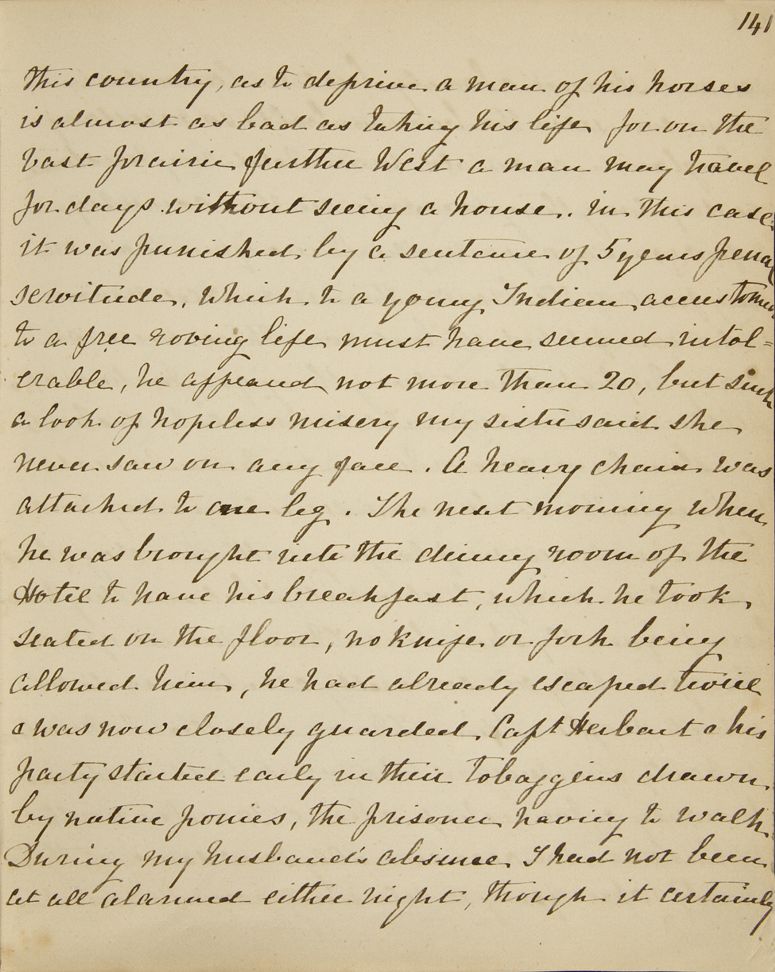 141
this country, as to deprive a man of his horses
is almost as bad as taking his life for on the
vast prairie further West a man may travel
for days without seeing a house. In this case
it was punished by a sentence of 5 years penal
servitude, which to a young Indian accustomed
to a free roving life must have seemed intol=
erable, he appeared not more than 20, but such
a look of hopeless misery my sister said she
never saw on any face. A heavy chain was
attached to one leg. The next morning when
he was brought into the dining room of the
Hotel to have his breakfast, which he took
seated on the floor, no knife or fork being
allowed him, he had already escaped twice
& was now closely guarded. Capt Herbart & his
party started early in their toboggins drawn
by native ponies, the prisoner having to walk
During my husband's absence I had not been
at all alarmed either night, though it certainly